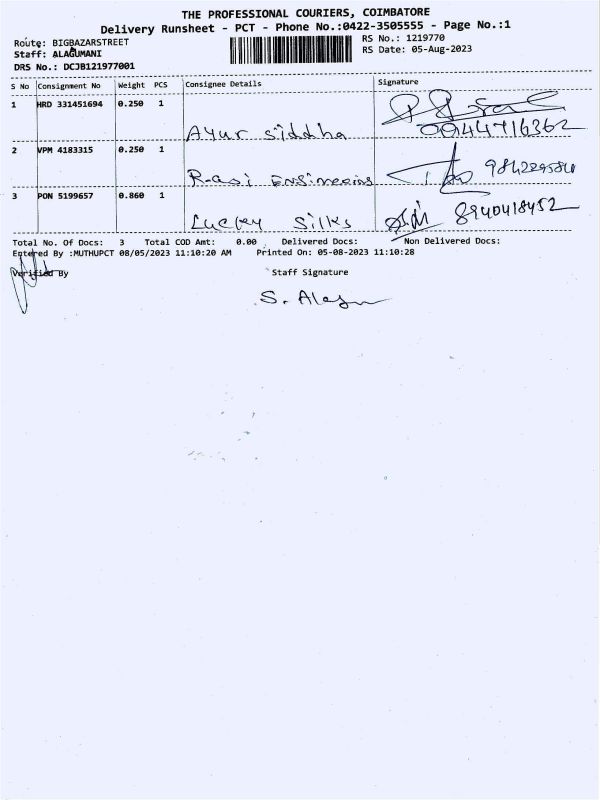 THE PROFESSIONAL COURIERS, COIMBATORE
Delivery Runsheet - PCT - Phone No.:0422-3505555 - Page No.:1
Route: BIGBAZARSTREET
RS No.: 1219770
Staff: ALAGUMANI
RS Date: 05-Aug-2023
DRS No.: DCJB121977001
S No Consignment No Weight PCS Consignee Details Signature
1 HRD 331451694 0.250 1 Ayur Siddha
2 VPM 4183315 0.250 1 Rasi Engineering
3 PON 5199657 0.860 1 Lucky Silks 8940418452
Total No. Of Docs: 3 Total COD Amt: 0.00 Delivered Docs: Non Delivered Docs:
Entered By :MUTHUPCT 08/05/2023 11:10:20 AM Printed On: 05-08-2023 11:10:28
Verified By Staff Signature
S. Alagu